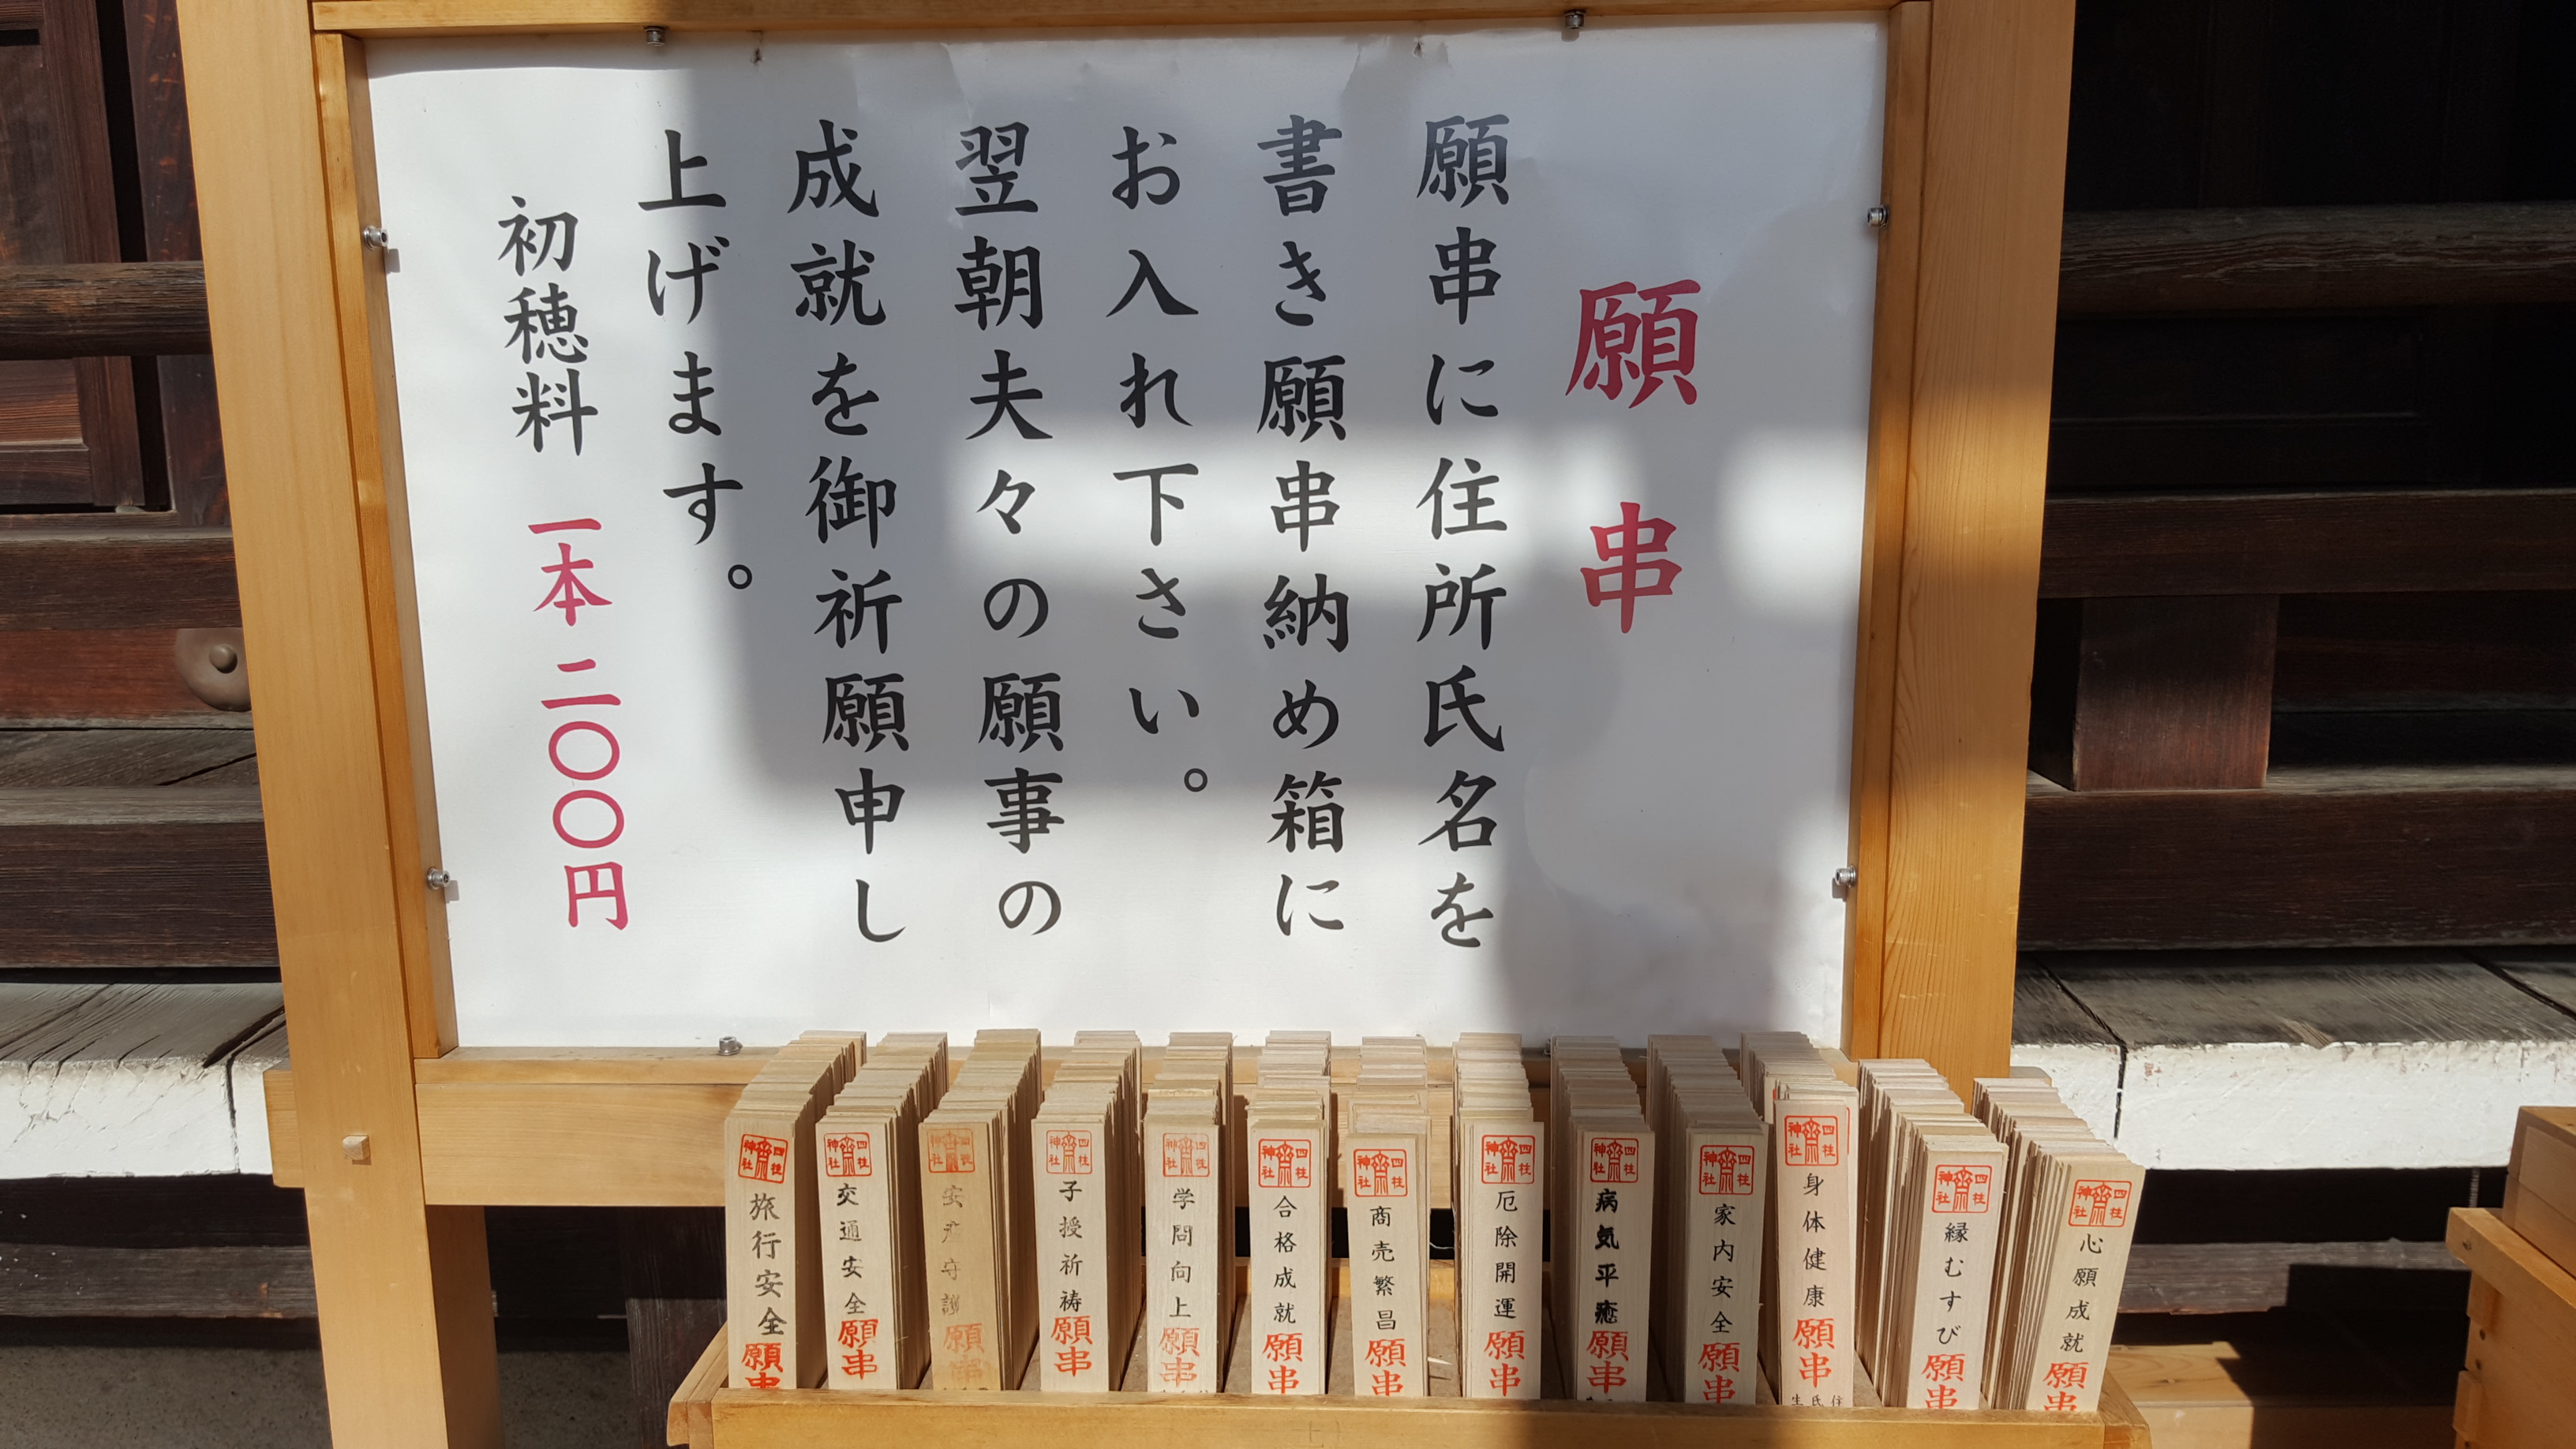 願串
願串に住所氏名を
書き願串納め箱に
お入れ下さい。
翌朝夫々の願事の
成就を御祈願申し
上げます。
初穂料 一本 二〇〇円
四柱神社 旅行安全 願串
四柱神社 交通安全 願串
四柱神社 安産守護 願串
四柱神社 子授祈祷 願串
四柱神社 学問向上 願串
四柱神社 合格成就 願串
四柱神社 商売繁昌 願串
四柱神社 厄除開運 願串
四柱神社 病気平癒 願串
四柱神社 家内安全 願串
四柱神社 身体健康 願串
四柱神社 縁むすび 願串
四柱神社 心願成就 願串